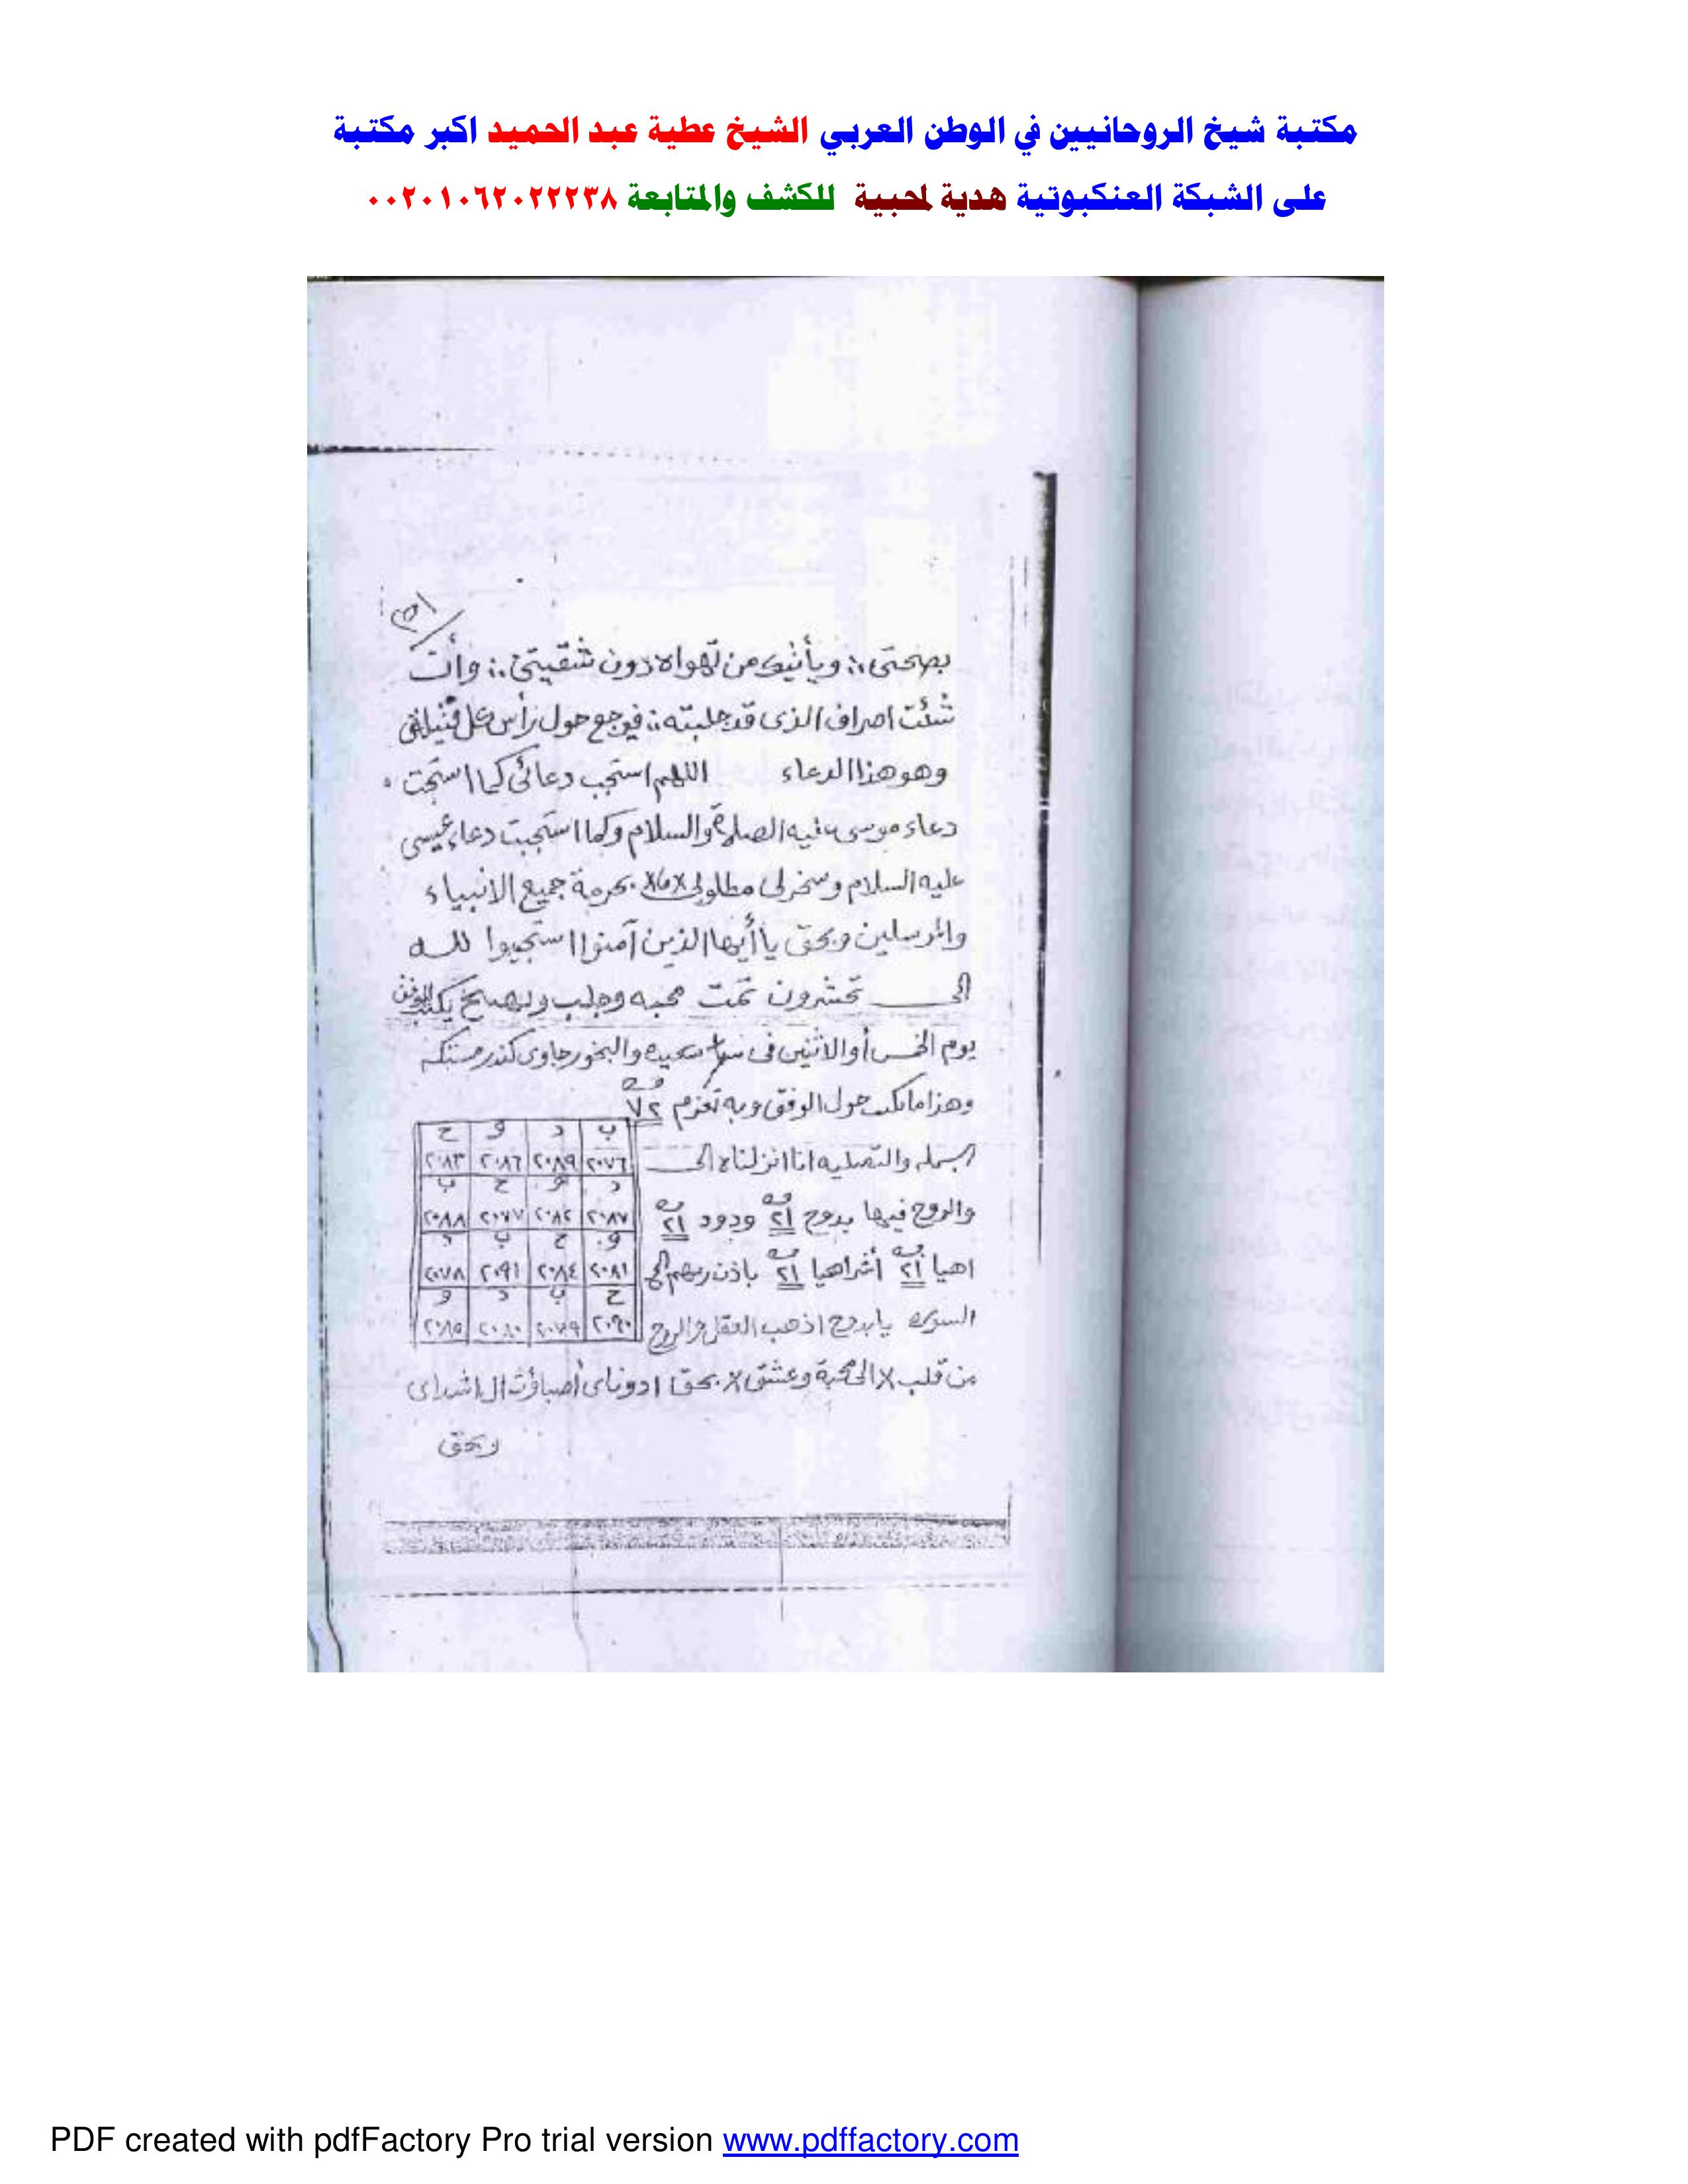 مكتبة شيخ الروحانيين في الوطن العربي الشيخ عطية عبد الحميد اكبر مكتبة
على الشبكة العنكبوتية هدية لمحبية للكشف والمتابعة ٠٠٢٠١٠٦٢٠٢٢٢٣٨
بصحتى ؛ من تهواه دون شقيتى ؛ وأت
شئت اصراف الذى قد جلبته ؛ حول رأس
وهو هذا الدعاء اللهم استجب دعائى كما استجت
دعاء موسى عليه الصلاة والسلام وكما استجبت دعاء عيسى
عليه السلام وسخر لى مطلوبى بحرمة جميع الانبياء
والمرسلين وبحق يا أيها الذين آمنوا استجيبوا لله
الى تحشرون تمت محبه وجلب
يوم الخمس أو الاثنين فى سعيده والبخور جاوى كندر مستكه
وهذا ما يكتب حول الوفق وبه تعزم ٧٢
البسمله والتصليه انا انزلناه الى
والروح فيها بدوح ٢١ ودود ٢١
اهيا ٢١ أشراهيا ٢١ باذن ربهم الى
السوره يا بدوح اذهب العقل والروح
من قلب x الى محبة وعشق x بحق ادوناى أصباؤت ال اشداى
وبحق
ب د و ح
٢٠٧٦ ٢٠٨٩ ٢٠٨٦ ٢٠٨٣
د و ح ب
٢٠٨٧ ٢٠٨٢ ٢٠٧٧ ٢٠٨٨
و ح ب د
٢٠٨١ ٢٠٨٤ ٢٠٩١ ٢٠٧٨
ح ب د و
٢٠٩٠ ٢٠٧٩ ٢٠٨٠ ٢٠٨٥
PDF created with pdfFactory Pro trial version www.pdffactory.com